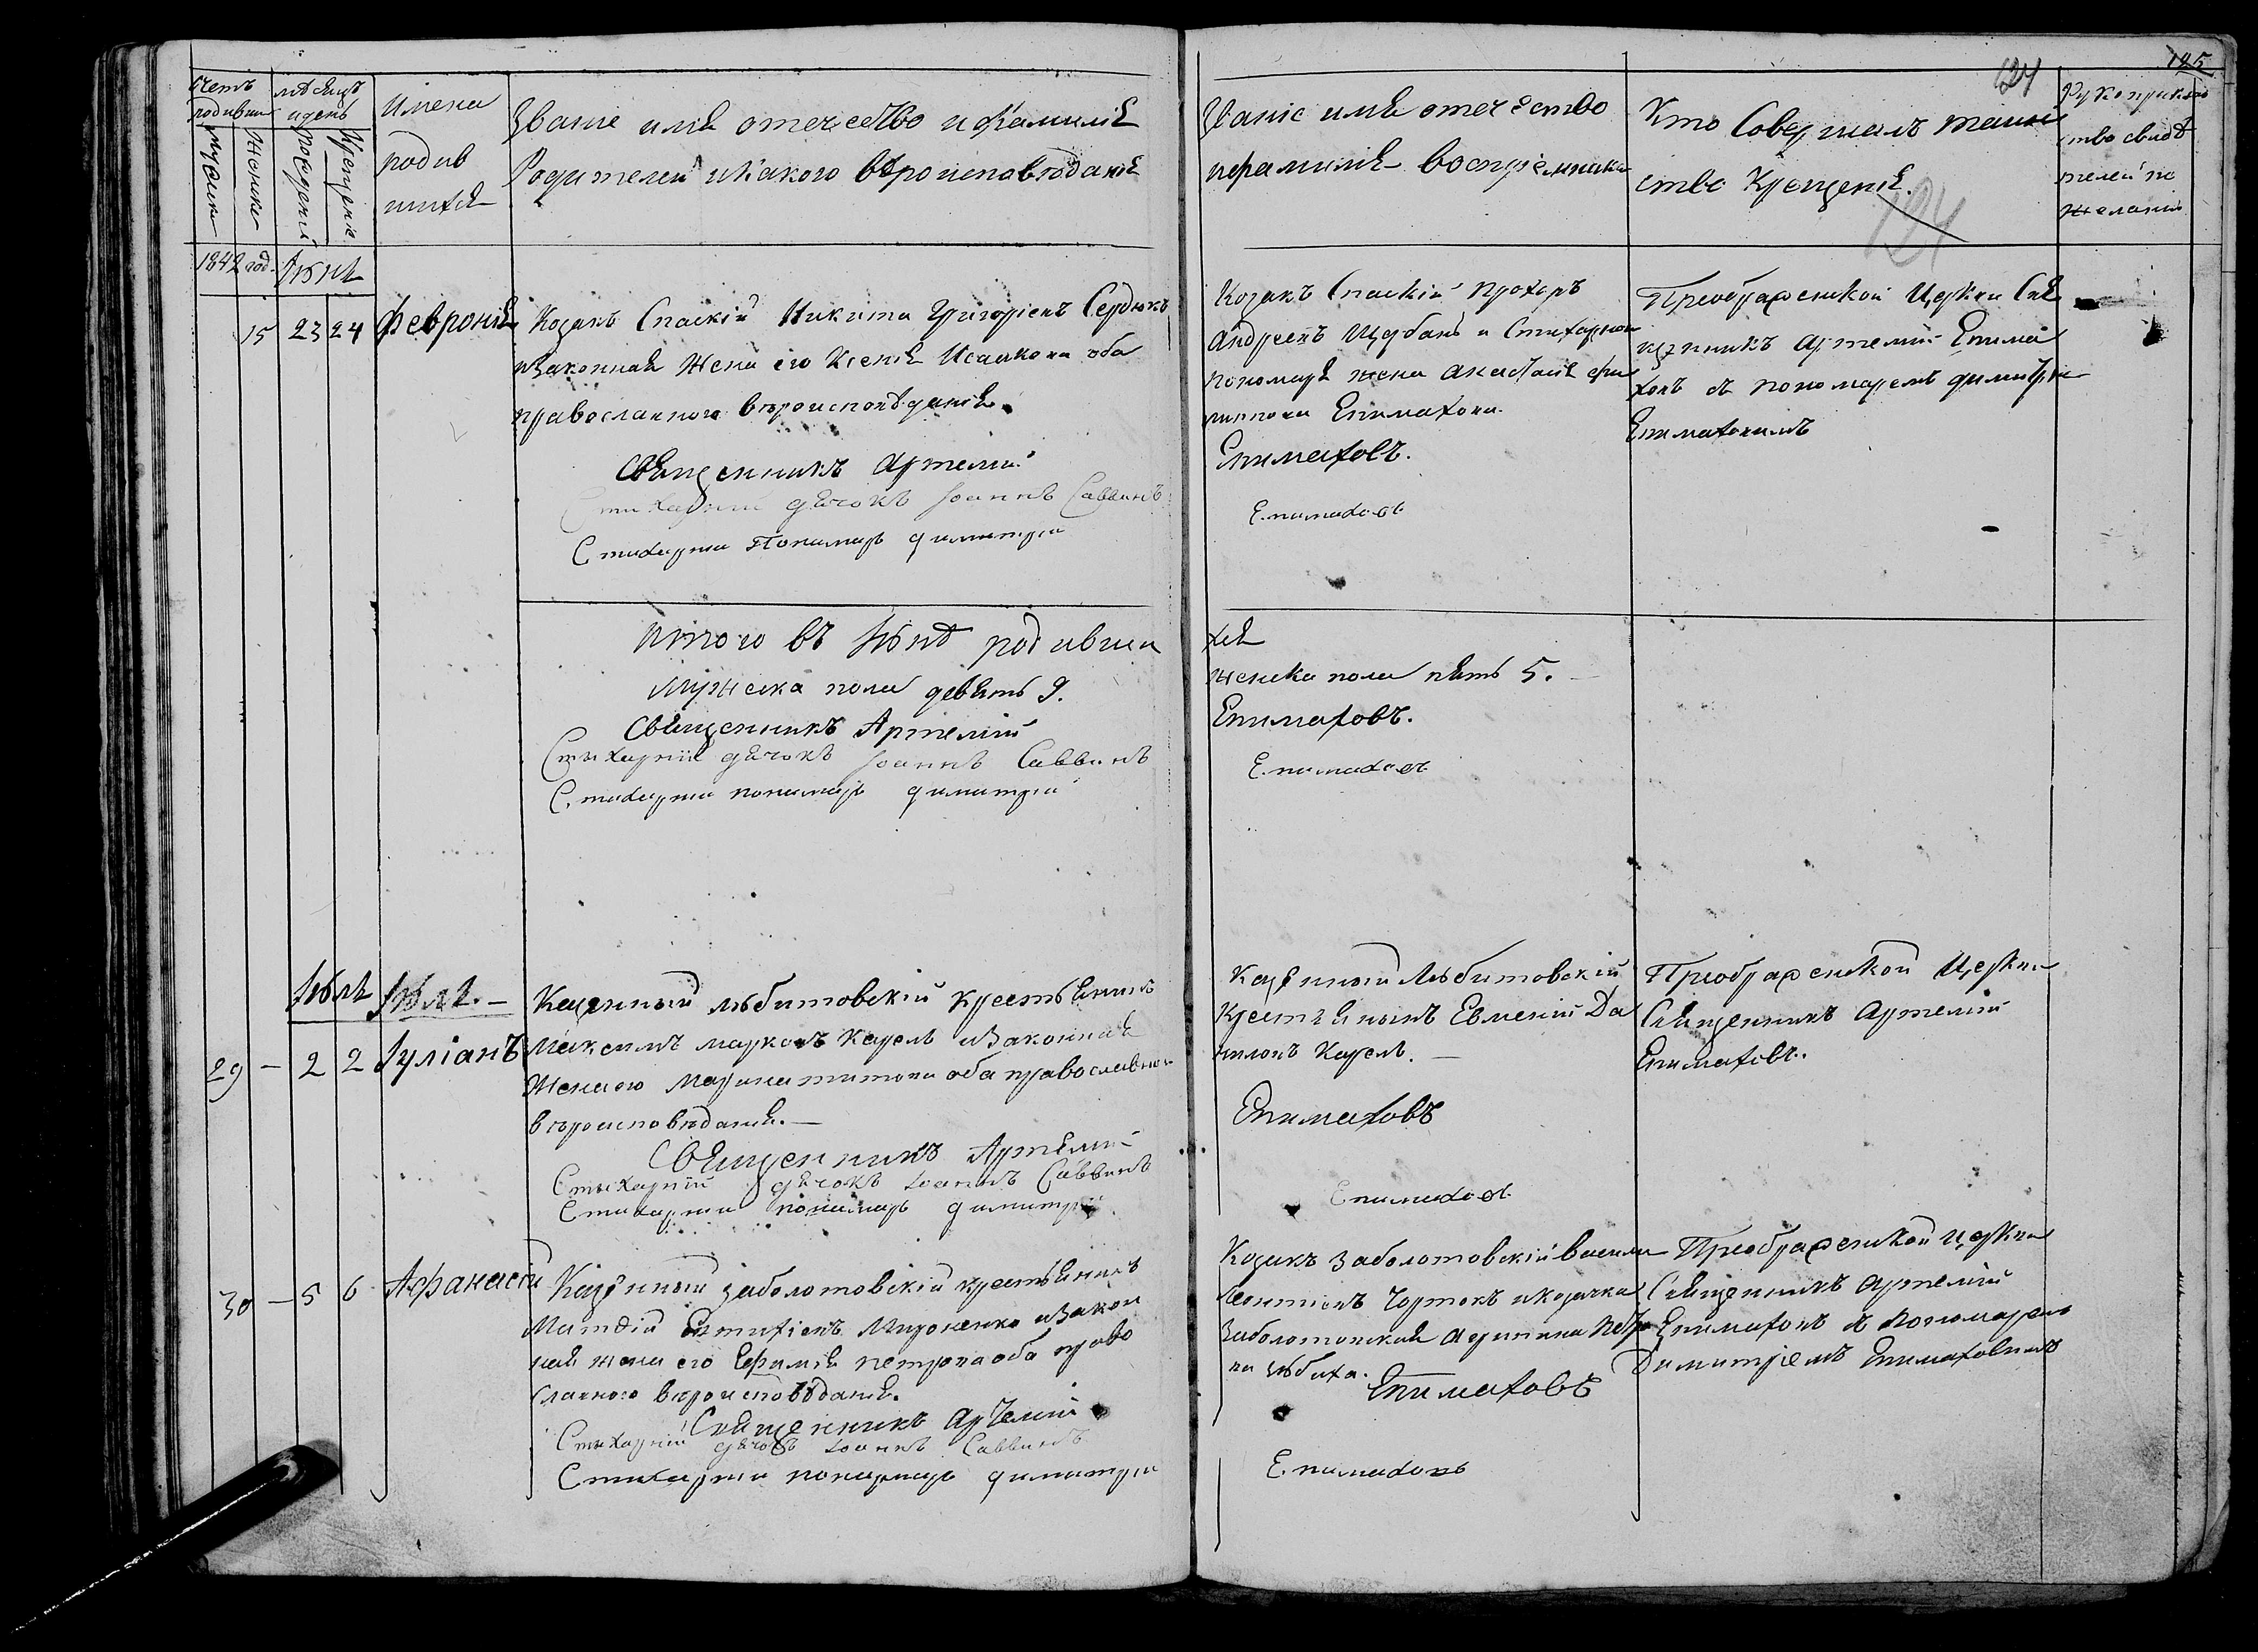 125
124
124
Счетъ
родивши
мѣсяцъ
и день
Имена
родив
шихся
Званіе имя отечество и фамилія
Родителей и какого вѣроисповѣданія
Мужска
Женска
Рожденія
Крещенія
Званіе имя отечество
и фамилія воспріемника
Кто Совершалъ таин
ство Крещенія
Рукоприклад
ство свидѣ
телей по
желанію
1842 год.
Іюня
15 23 24
Февронія
Козакъ Спаскій Никита Григоріевъ Сердюкъ
и Законная Жена его Ксенія Исаакова оба
православнаго вѣроисповѣданія.
Священникъ Артемій
Стихарный дячокъ Іоаннъ Саввинъ
Стихарный Пономарь Димитрій
Козакъ Спаскій Прохоръ
Андреевъ Щербань и Стихарнаго
пономаря жена Анастасія Фи
липпова Епимахова.
Епимаховъ.
Епимаховъ
Преображенской Церкви Свя
щенникъ Артемій Епима
ховъ съ пономаремъ Димитріе
Епимаховимъ
Итого въ Іюнѣ родивши
Мужеска пола девять 9.
Священникъ Артемій
Стихарній дячокъ Іоаннъ Саввинъ
Стихарный пономарь Димитрій
хся
женска пола пять 5.
Епимаховъ.
Епимаховъ
Іюля Іюля.
29 - 2 2
Іуліанъ
Казенный Любитовскій крестьянинъ
Максимъ Марковъ Карель и Законная
Жена его Марина Титова оба православнаго
вѣроисповѣданія.
Священникъ Артемій
Стихарній дячокъ Іоаннъ Саввинъ
Стихарный пономарь Димитрій
Казенный Любитовскій
Крестьянинъ Евмений Да
ниловъ Карель.
Епимаховъ
Епимаховъ
Преображенской Церкви
Священникъ Артемій
Епимаховъ.
30 - 5 6
Афанасій
Казенный Заболотовскій крестьянинъ
Матфій Евтихіевъ Мироненко и Закон
ная жена его Ефимія Петрова оба право
славного вѣроисповѣданія.
Священникъ Артемій
Стихарній дячокъ Іоаннъ Саввинъ
Стихарный пономарь Димитрій
Козакъ Заболотовскій Васили
Леонтіевъ Чортокъ и козачка
Заболотовская Петро
Епимаховъ
Епимаховъ
Преображенской Церкви
Священникъ Артемій
Епимаховъ съ Пономаремъ
Димитріемъ Епимаховимъ